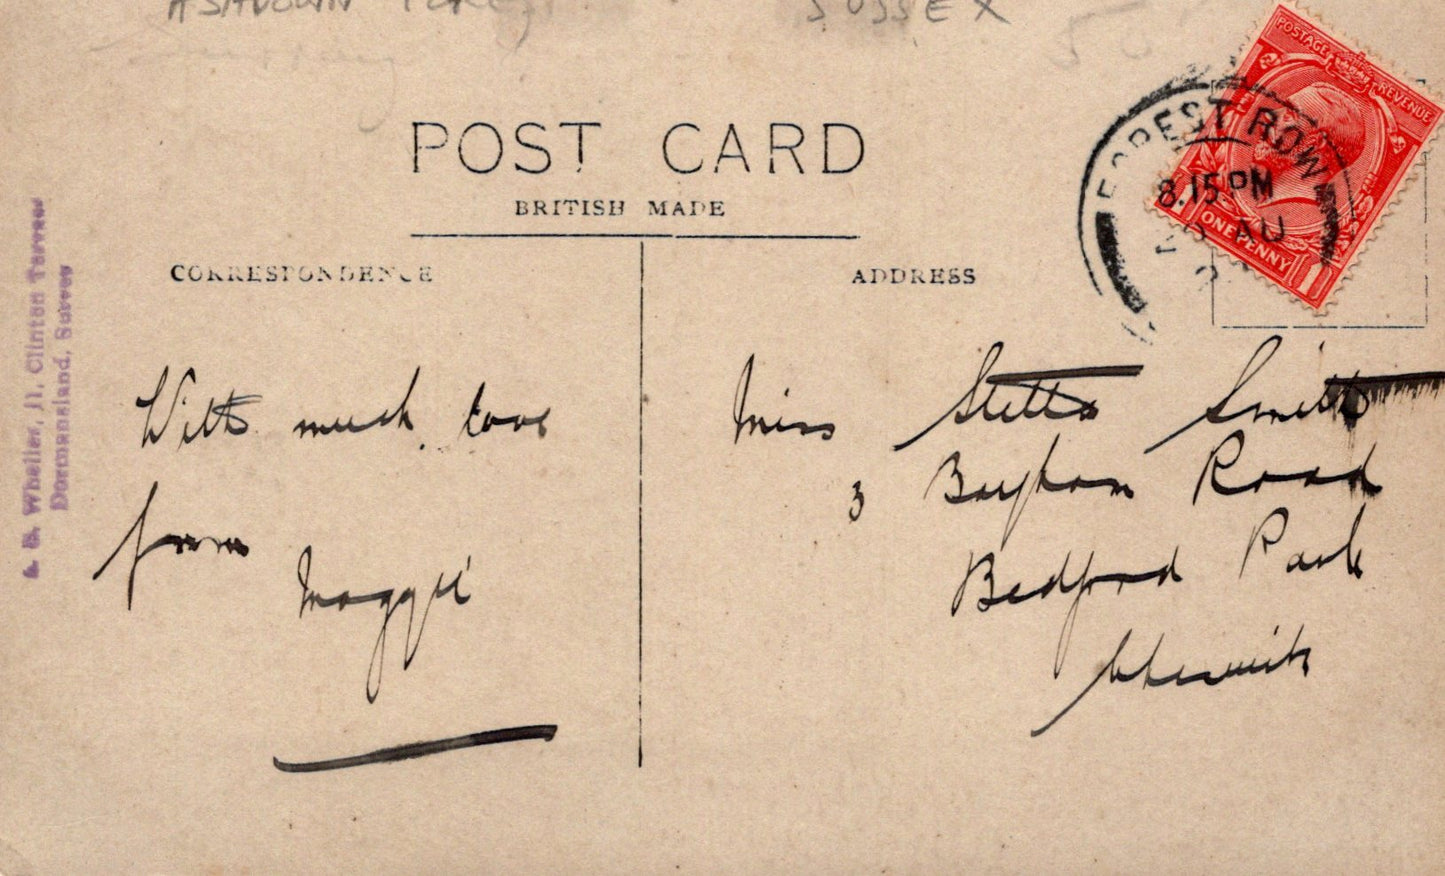 ASHDOWN FOREST SUSSEX
POSTAGE REVENUE
FOREST ROW
8.15 PM
AU
ONE PENNY
POST CARD
BRITISH MADE
CORRESPONDENCE
ADDRESS
A. E. Wheller, 11, Clinton Terrace
Dormansland, Surrey
With much love
from
Maggie
Miss Stella Smith
3 Bayham Road
Bedford Park
Chiswick